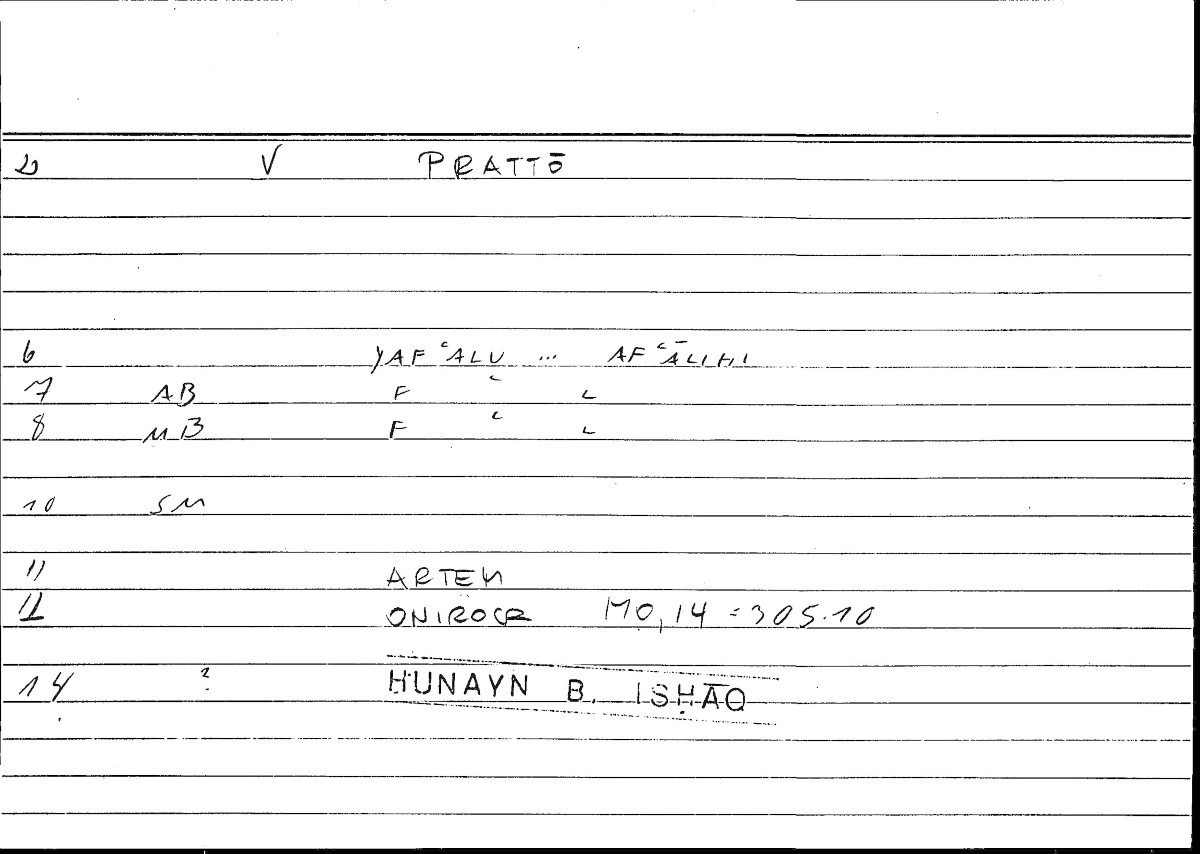 20 V PRATTŌ
6 YAFʿALU ... AFʿĀLIHI
7 AB F ʿ L
8 MB F ʿ L
10 SM
11 ARTEM
12 ONIROCR 170,14 = 305.10
14 ? ḤUNAYN B. ISḤĀQ